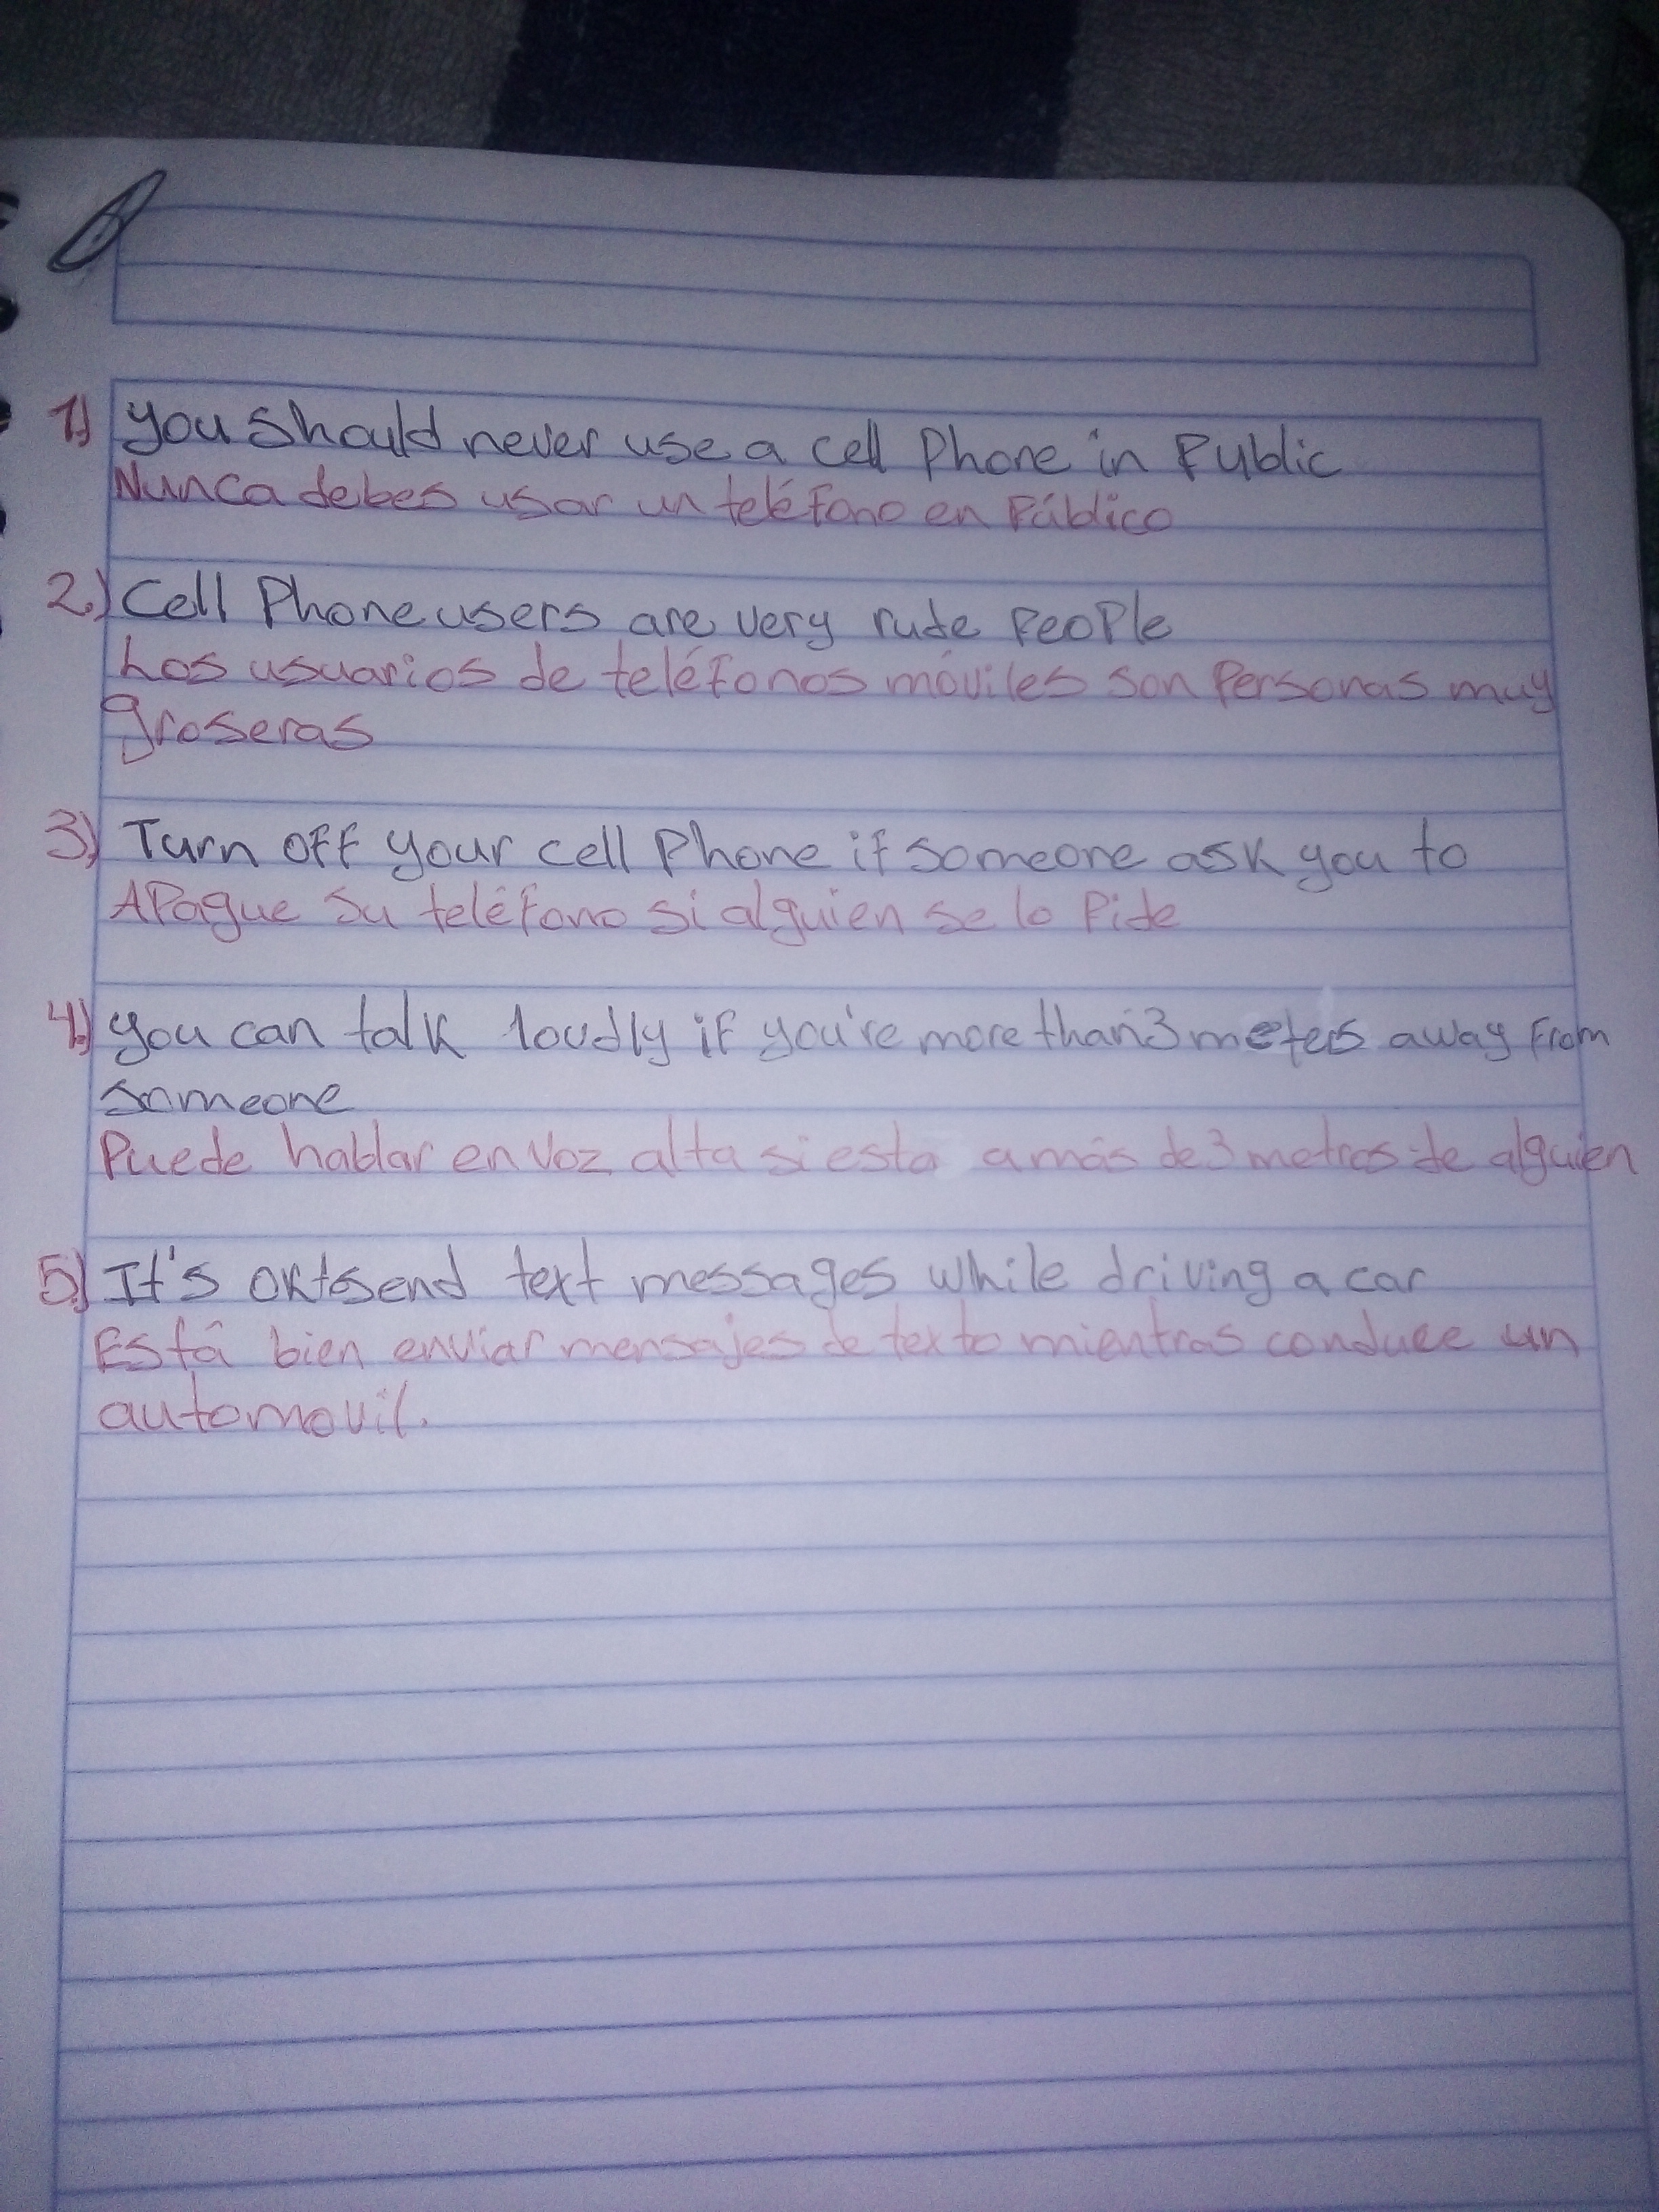 1.) you should never use a cell Phone in Public
Nunca debes usar un teléfono en Público
2.) Cell Phone users are very rude PeoPle
Los usuarios de teléfonos móviles son Personas muy
groseras
3.) Turn off your cell Phone if someone ask you to
APague su teléfono si alguien se lo Pide
4.) you can talk loudly if you're more than 3 meters away from
someone
Puede hablar en voz alta si esta a más de 3 metros de alguien
5.) It's ok to send text messages while driving a car
Está bien enviar mensajes de texto mientras conduce un
automovil.